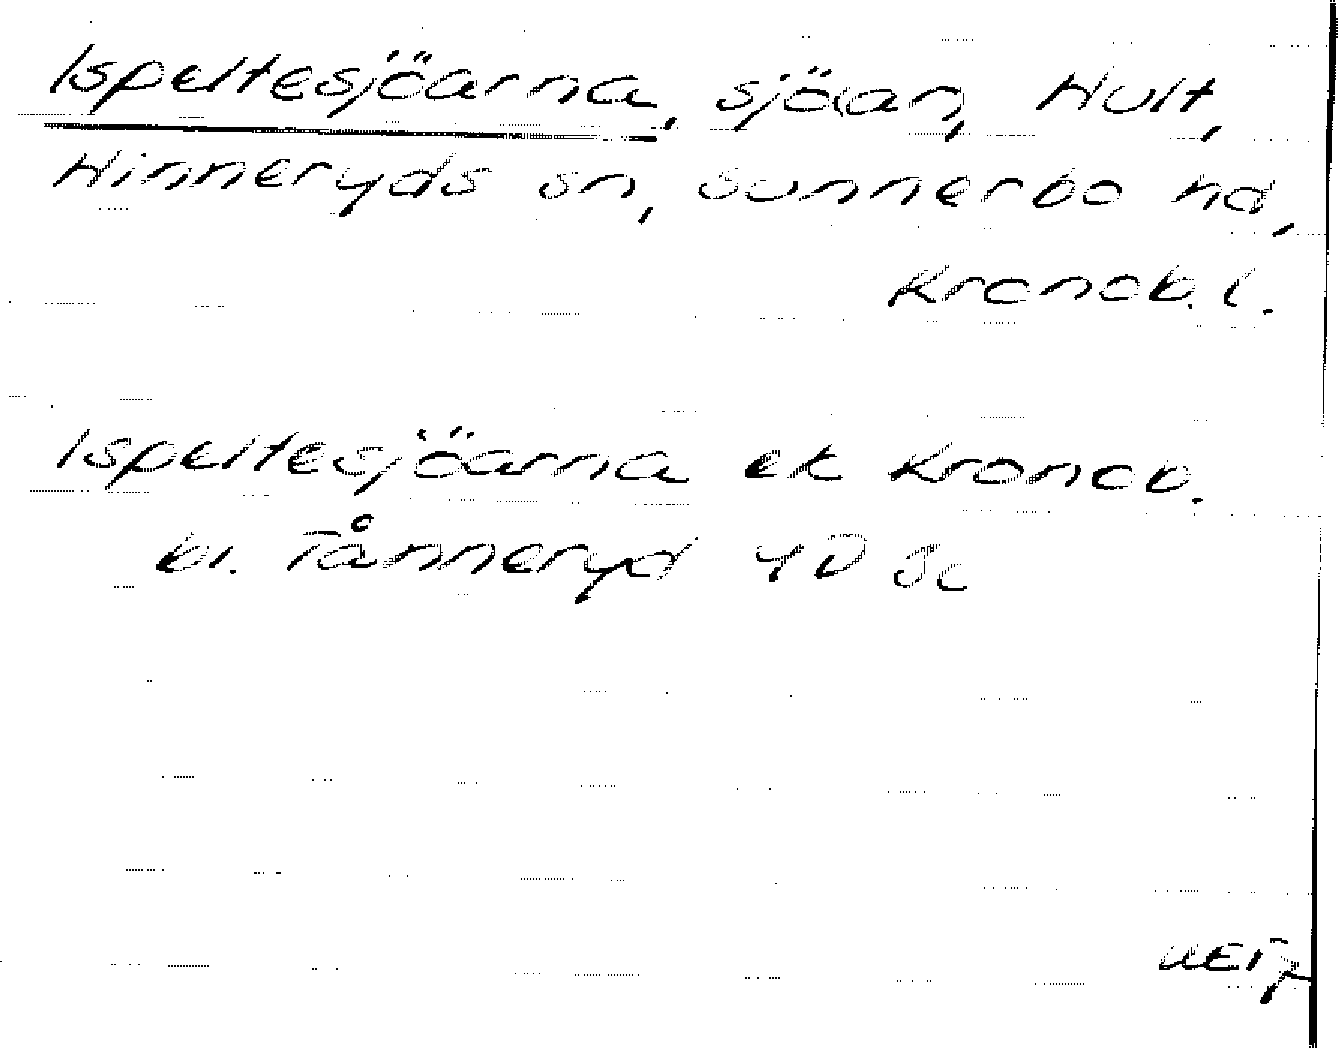 Ispeltesjöarna, sjöar, Hult,
Hinneryds sn, Sunnerbo hd,
Kronob. l.
Ispeltesjöarna ek Kronob.
bl. Tånneryd 4D